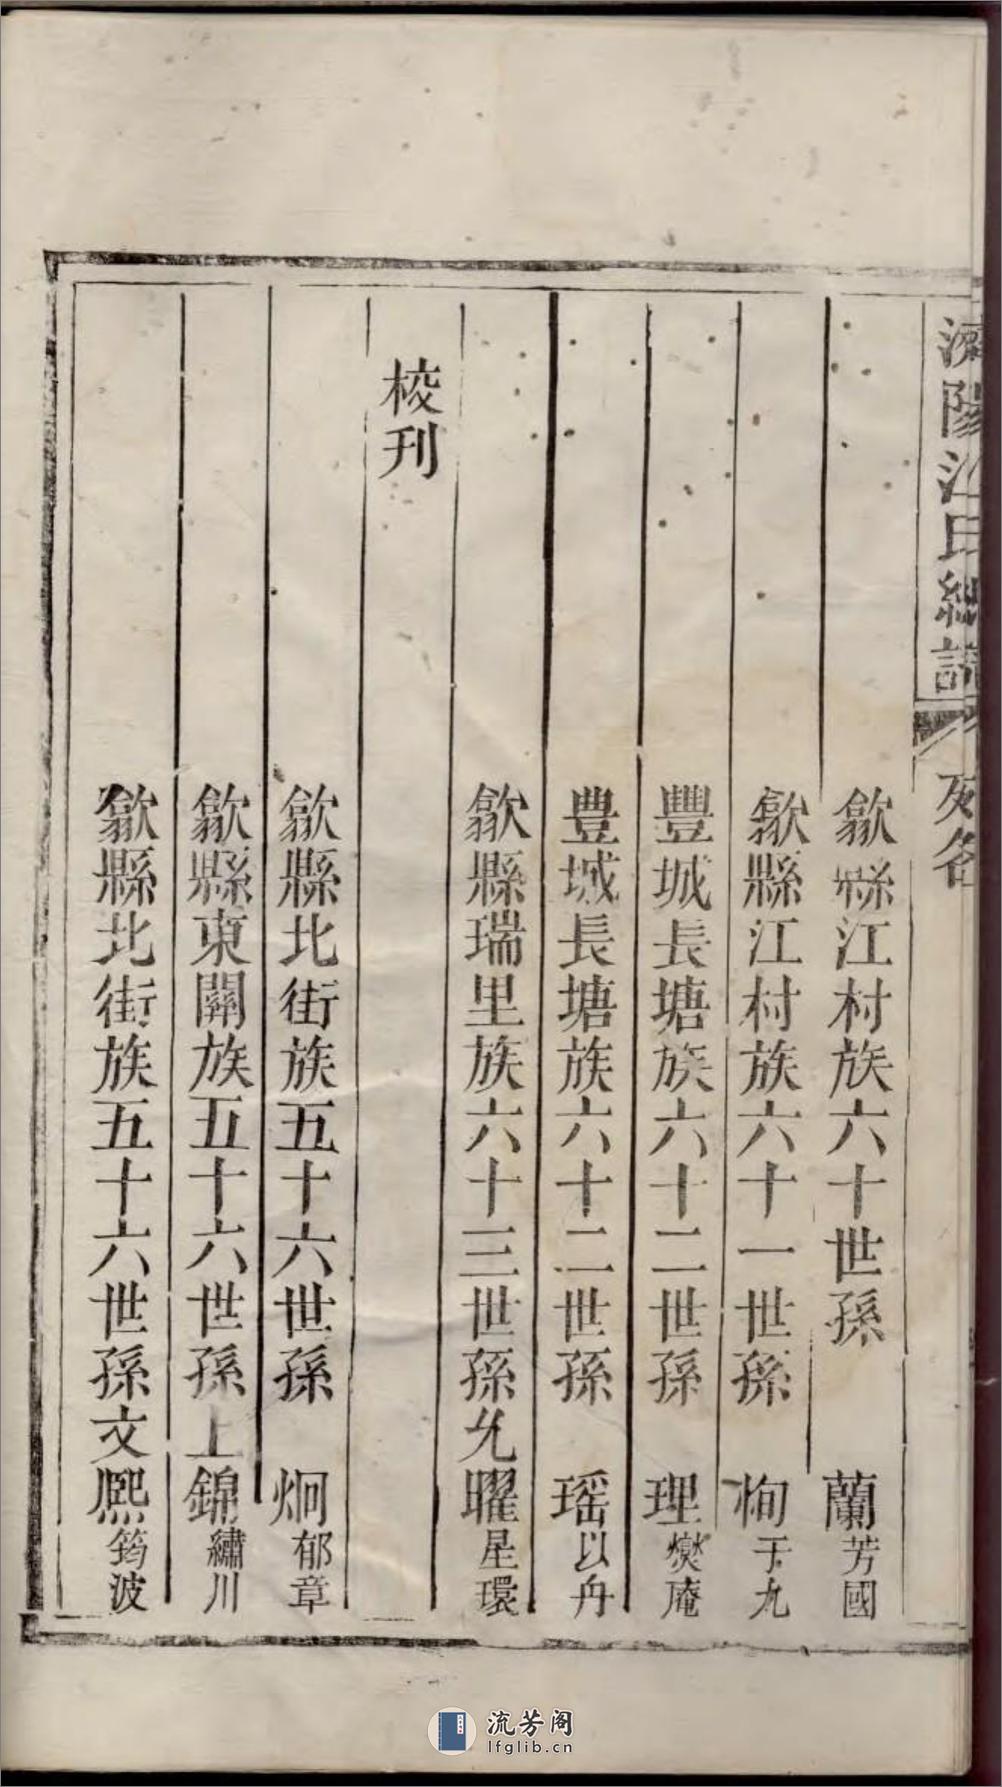 濟陽江氏總譜
列名
歙縣江村族六十世孫 蘭芳國
歙縣江村族六十一世孫 恂于九
豐城長塘族六十二世孫 理爕庵
豊城長塘族六十二世孫 瑶以舟
歙縣瑞里族六十三世孫允曜星環
校刊
歙縣北街族五十六世孫 炯郁章
歙縣東關族五十六世孫上錦繡川
歙縣北街族五十六世孫文熙筠波
流芳阁
lfglib.cn